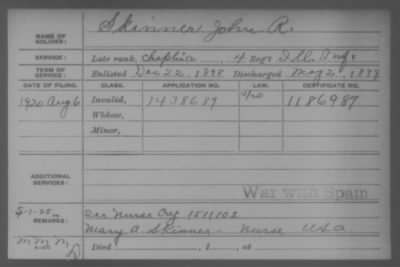 NAME OF SOLDIER: Skinner John R.
SERVICE: Late rank, Chaplain, 4 Reg't Ill. Inf.
TERM OF SERVICE: Enlisted Dec 22, 1898 Discharged May 2, 1899
DATE OF FILING. CLASS. APPLICATION NO. LAW. CERTIFICATE NO.
1920 Aug 6 Invalid, 1438689 1186987
Widow,
Minor,
ADDITIONAL SERVICES:
War with Spain
REMARKS: See Nurse Org 1511102
Mary A. Skinner - Nurse USA
Died , 1 , at